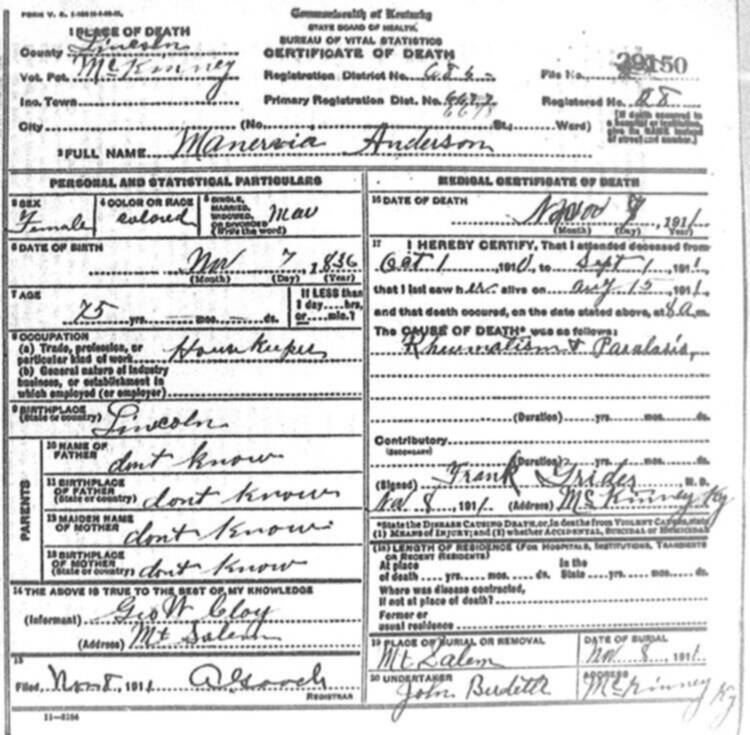 Commonwealth of Kentucky
STATE BOARD OF HEALTH.
BUREAU OF VITAL STATISTICS
CERTIFICATE OF DEATH
1 PLACE OF DEATH
County Lincoln
Vot. Pct. McKinney
Registration District No.
File No. 29150
Inc. Town
Primary Registration Dist. No.
Registered No. 28
City (No. St., Ward)
[If death occured in a hospital or institution, give its NAME instead of street and number.]
2 FULL NAME Manervia Anderson
PERSONAL AND STATISTICAL PARTICULARS
3 SEX Female
4 COLOR OR RACE colored
5 SINGLE, MARRIED, WIDOWED, OR DIVORCED (Write the word) Mar
6 DATE OF BIRTH Nov 7, 1836
(Month) (Day) (Year)
7 AGE 75 yrs. mos. ds.
If LESS than 1 day....hrs. or....min.?
8 OCCUPATION
(a) Trade, profession, or particular kind of work House keeper
(b) General nature of industry business, or establishment in which employed (or employer)
9 BIRTHPLACE (State or country) Lincoln
PARENTS
10 NAME OF FATHER dont know
11 BIRTHPLACE OF FATHER (State or country) dont know
12 MAIDEN NAME OF MOTHER dont know
13 BIRTHPLACE OF MOTHER (State or country) dont know
14 THE ABOVE IS TRUE TO THE BEST OF MY KNOWLEDGE
(Informant) Geo W Cloy
(Address) Mt Salem
15
Filed Nov 8, 1911
REGISTRAR
11-3184
MEDICAL CERTIFICATE OF DEATH
16 DATE OF DEATH Nov 7, 1911
(Month) (Day) (Year)
17 I HEREBY CERTIFY, That I attended deceased from
Oct 1, 1910, to Sept 1, 1911
that I last saw her alive on aug 15, 1911
and that death occured, on the date stated above, at 8 a.m.
The CAUSE OF DEATH* was as follows:
Rheumatism & Paralasis
(Duration) yrs. mos. ds.
Contributory
(SECONDARY)
(Duration) yrs. mos. ds.
(Signed) Frank M. D.
Nov 8, 1911 (Address) McKinney Ky
*State the DISEASE CAUSING DEATH, or, in deaths from VIOLENT CAUSES, state
(1) MEANS OF INJURY; and (2) whether ACCIDENTAL, SUICIDAL or HOMICIDAL
(18) LENGTH OF RESIDENCE (FOR HOSPITALS, INSTITUTIONS, TRANSIENTS OR RECENT RESIDENTS)
At place of death yrs. mos. ds.
In the State yrs. mos. ds.
Where was disease contracted,
If not at place of death?
Former or
usual residence
19 PLACE OF BURIAL OR REMOVAL Mt Salem
DATE OF BURIAL Nov 8, 1911
20 UNDERTAKER John Burdett
ADDRESS McKinney Ky